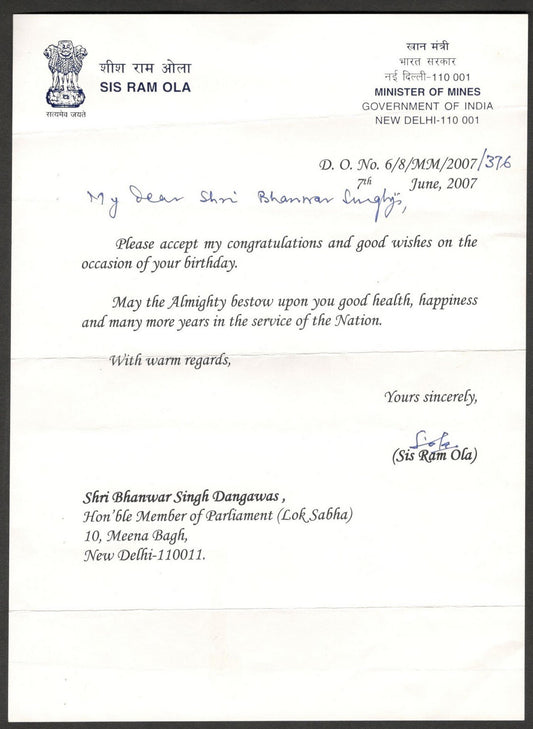 खान मंत्री
भारत सरकार
नई दिल्ली-110 001
MINISTER OF MINES
GOVERNMENT OF INDIA
NEW DELHI-110 001
शीश राम ओला
SIS RAM OLA
सत्यमेव जयते
D. O. No. 6/8/MM/2007/376
7th June, 2007
My Dear Shri Bhanwar Singhji,
Please accept my congratulations and good wishes on the
occasion of your birthday.
May the Almighty bestow upon you good health, happiness
and many more years in the service of the Nation.
With warm regards,
Yours sincerely,
(Sis Ram Ola)
Shri Bhanwar Singh Dangawas ,
Hon'ble Member of Parliament (Lok Sabha)
10, Meena Bagh,
New Delhi-110011.